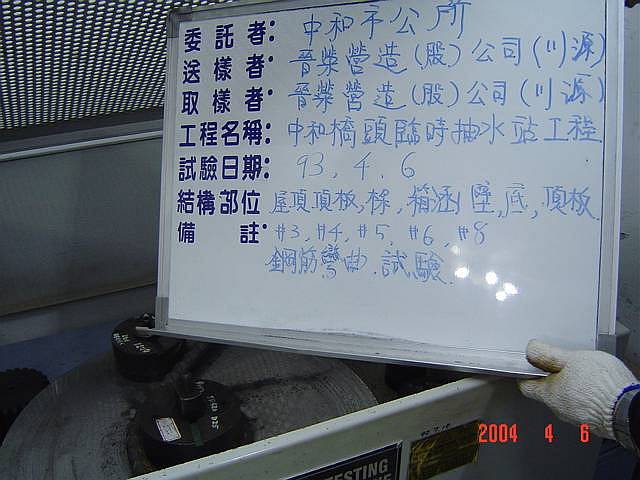 委託者: 中和市公所
送樣者: 晉榮營造(股)公司(川源)
取樣者: 晉榮營造(股)公司(川源)
工程名稱: 中和橋頭臨時抽水站工程
試驗日期: 93, 4, 6
結構部位 屋頂頂板, 樑, 箱涵 底, 頂板
備 註: #3, #4, #5, #6, #8
鋼筋彎曲.試驗
TESTING
2004 4 6